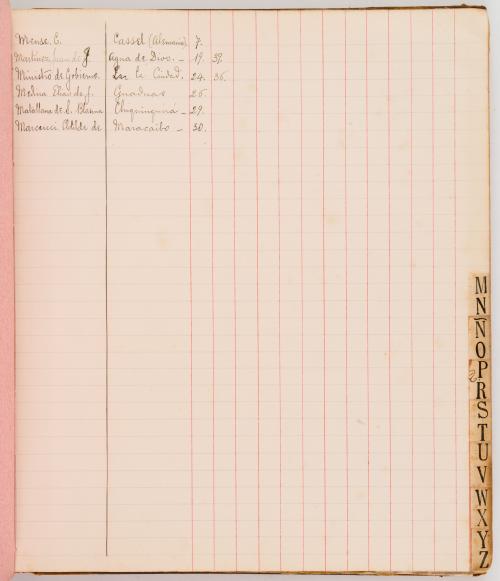 Mense. C. Cassel (Alemania). 7.
Martinez Juan de J. Agua de Dios. - 19. 39.
Ministro de Gobierno. La Ciudad. 24. 36.
Medina Elias de J. Guaduas 26.
Matallana de L. Blanca Chiquinquirá - 29.
Clotilde de Maracaibo - 30.
M
N
Ñ
O
P
R
S
T
U
V
W
X
Y
Z